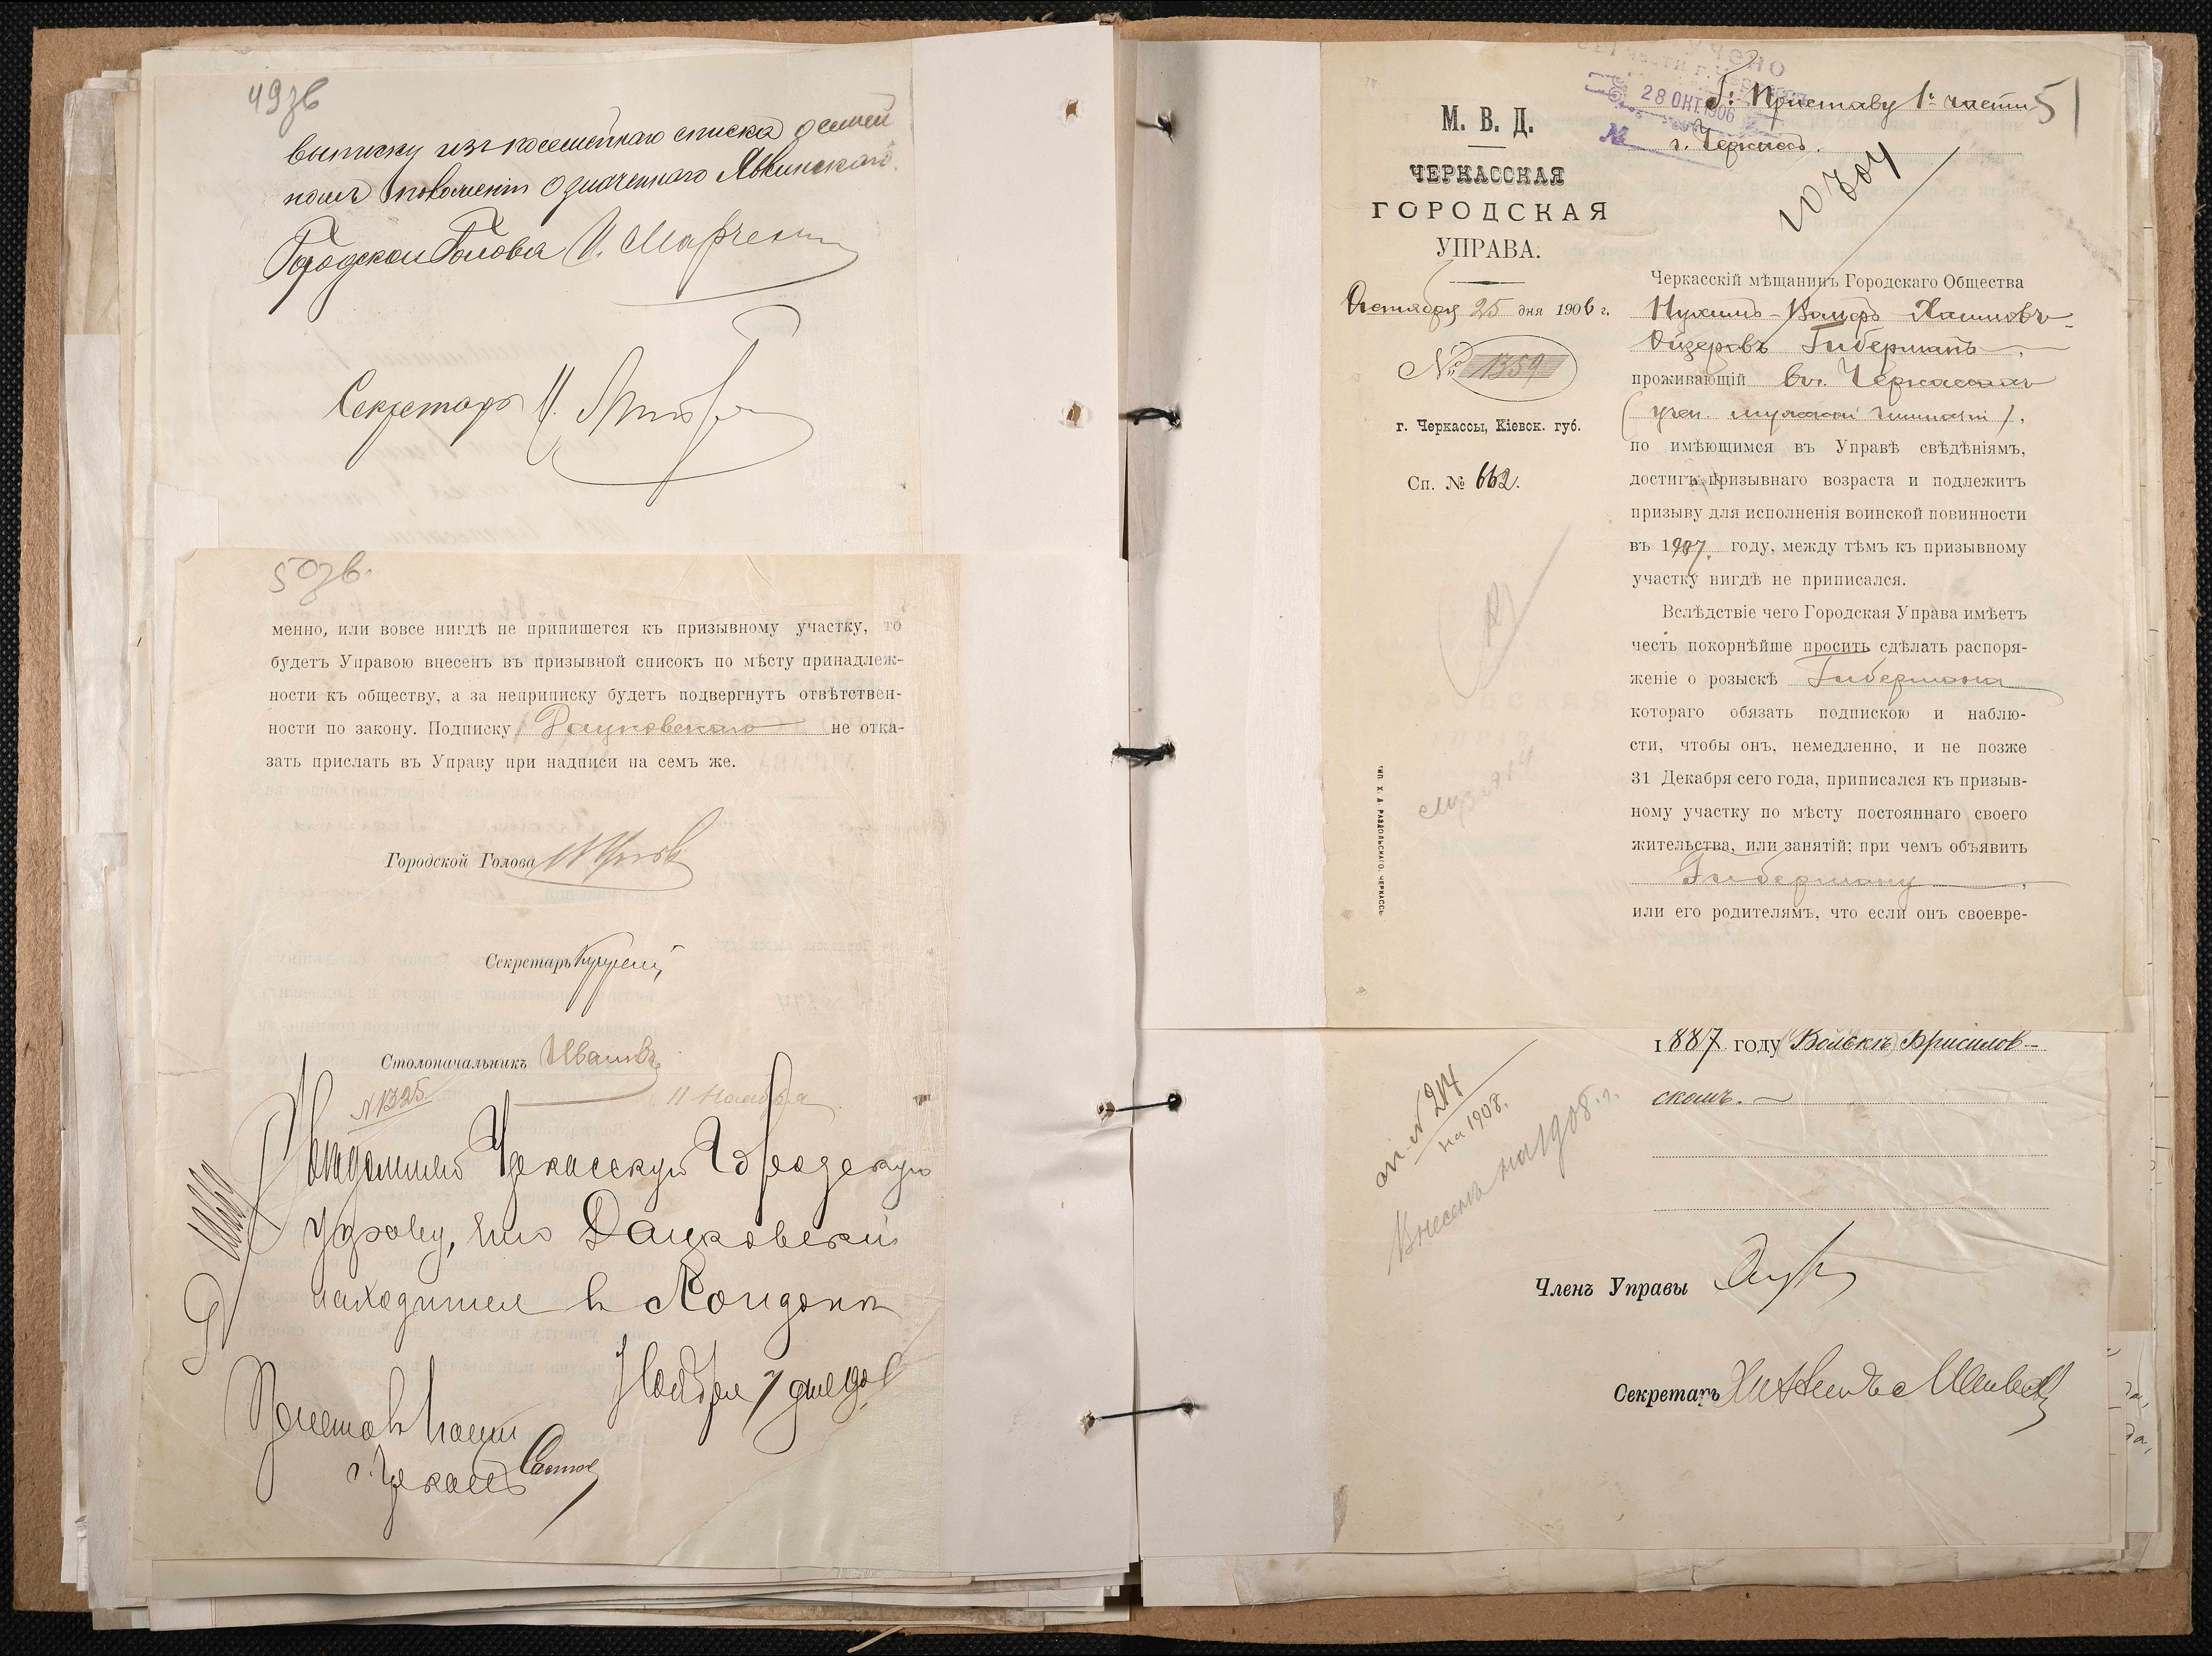 49зв
выписку изъ посемейнаго списка о семей
номъ положеніи означеннаго Явкинскаго.
Городской Голова И.
Секретарь
50зв.
менно, или вовсе нигдѣ не припишется къ призывному участку, то
будетъ Управою внесенъ въ призывной списокъ по мѣсту принадлеж-
ности къ обществу, а за неприписку будетъ подвергнутъ отвѣтствен-
ности по закону. Подписку не отка-
зать прислать въ Управу при надписи на семъ же.
Городской Голова
Секретарь
Столоначальникъ Ивановъ
№ 1325 11 Ноября
Увѣдомляю Черкасскую Городскую
управу, что Дацковскій
находится въ Лондонѣ
Ноября 7 дня
Приставъ части
г. Черкассъ
ОКТ 1906
28
№
Г. Приставу 1й части
г. Черкассъ.
51
10704
М. В. Д.
ЧЕРКАССКАЯ
ГОРОДСКАЯ
УПРАВА.
Октября 25 дня 1906 г.
№ 1359
г. Черкассы, Кіевск. губ.
Сп. № 662.
Черкасскій мѣщанинъ Городскаго Общества
Нухимъ-Вольфъ Хаимовъ-
Ойзеровъ Гиберманъ,
проживающій въ г. Черкассахъ
(учен. мужской гимназіи),
по имѣющимся въ Управѣ свѣдѣніямъ,
достигъ призывнаго возраста и подлежитъ
призыву для исполненія воинской повинности
въ 1907 году, между тѣмъ къ призывному
участку нигдѣ не приписался.
Вслѣдствіе чего Городская Управа имѣетъ
честь покорнѣйше просить сдѣлать распоря-
женіе о розыскѣ Гибермана
котораго обязать подпискою и наблю-
сти, чтобы онъ, немедленно, и не позже
31 Декабря сего года, приписался къ призыв-
ному участку по мѣсту постояннаго своего
жительства, или занятій; при чемъ объявить
Гиберману,
или его родителямъ, что если онъ своевре-
ТИП. Х. Д. РАЗДОЛЬСКАГО, ЧЕРКАССЫ
1887 году (Вольки) Брисилов-
скомъ.
№ 214
на 1908.
Внесенъ на 1908 г.
Членъ Управы
Секретарь